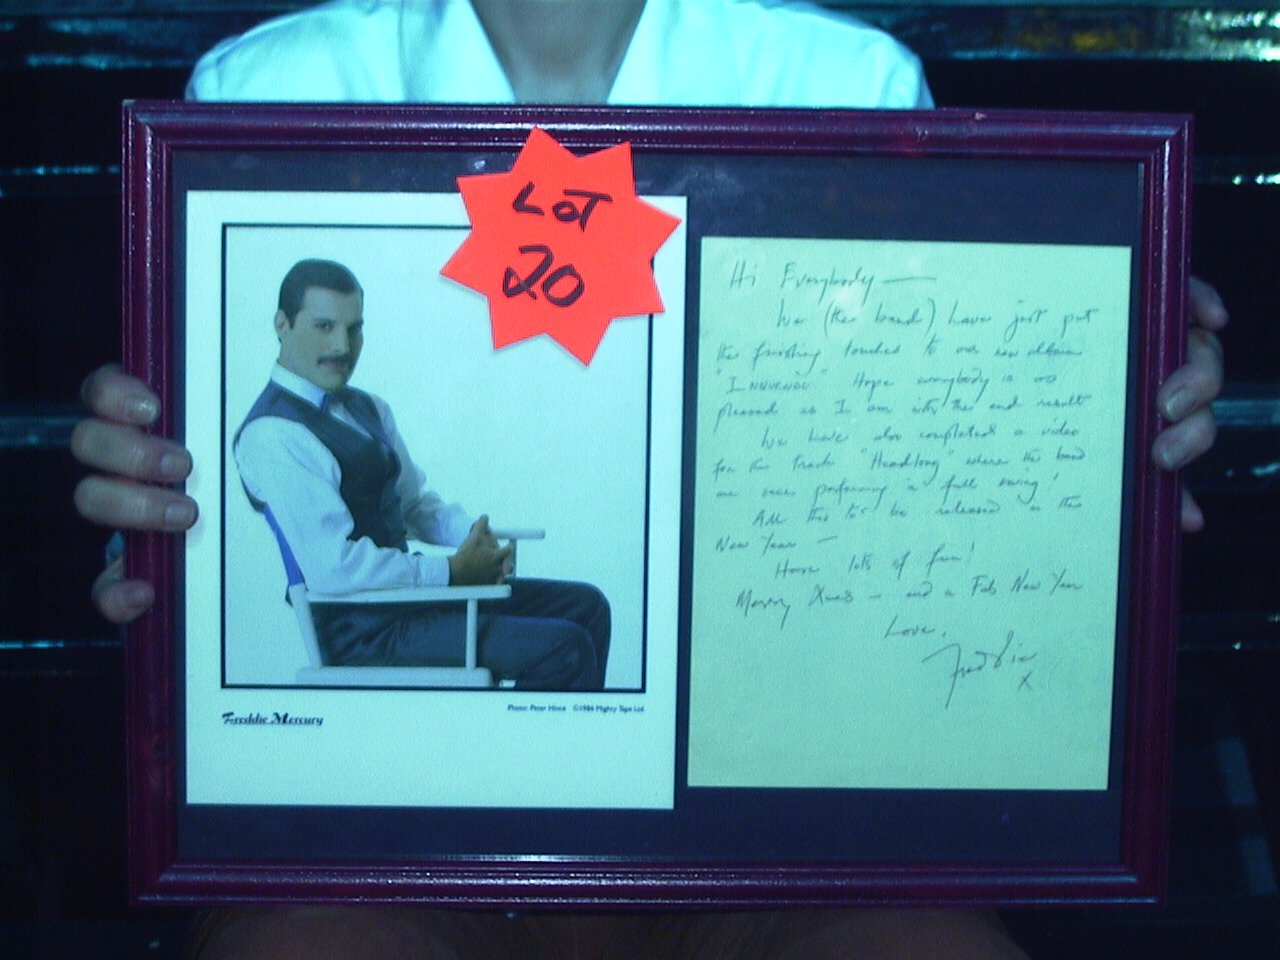 LOT
20
Freddie Mercury
Photo: Peter Hince ©1986 Mighty Tape Ltd.
Hi Everybody —
We (the band) have just put
the finishing touches to our new album
"INNUENDO" Hope everybody is as
pleased as I am with the end result
We have also completed a video
for the track "Headlong" where the band
are seen performing in full swing!
All this to be released in the
New Year —
Have lots of fun!
Merry Xmas — and a Fab New Year
Love,
Freddie
x